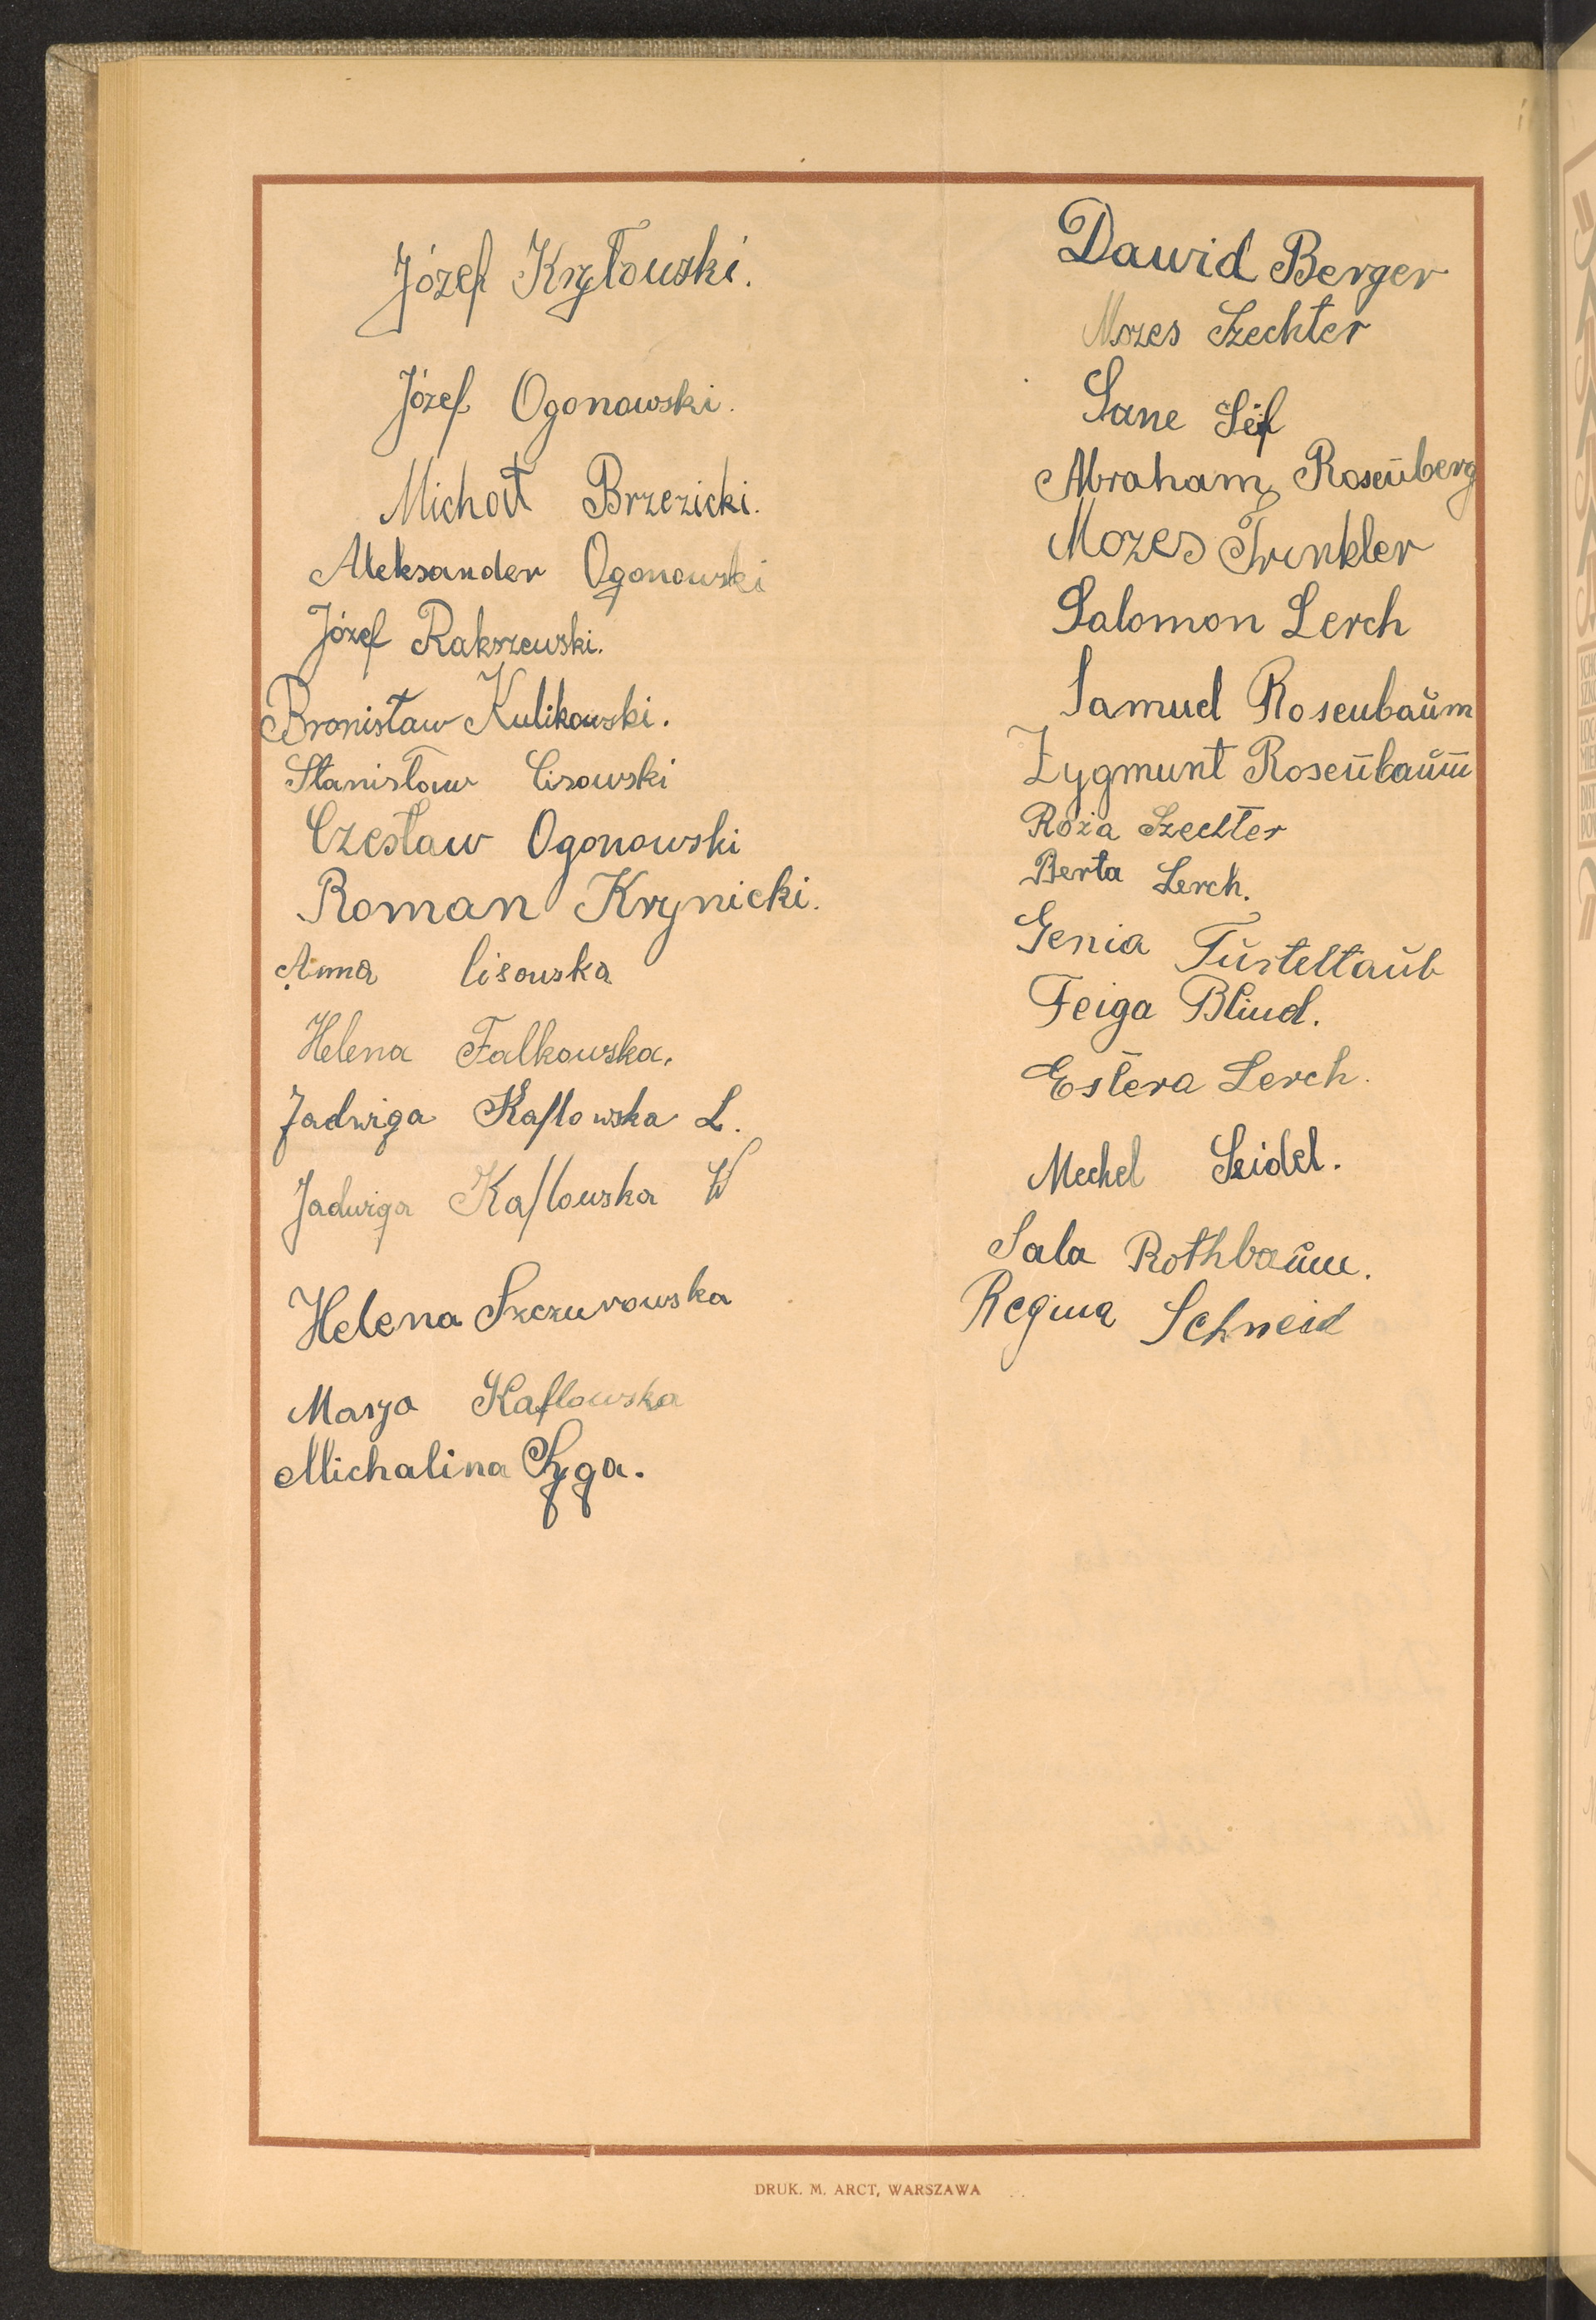 Józef Kryłowski.
Józef Ogonowski.
Michał Brzezicki.
Aleksander Ogonowski
Józef Rakszewski.
Bronisław Kulikowski.
Stanisław Lisowski
Czesław Ogonowski
Roman Krynicki.
Anna Lisowska
Helena Falkowska.
Jadwiga Kaflowska L.
Jadwiga Kaflowska W
Helena Szczurowska
Marya Kaflowska
Michalina Syga.
Dawid Berger
Mozes Szechter
Sane
Abraham Rosenberg
Mozes Trinkler
Salomon Lerch
Samuel Rosenbaŭm
Zygmunt Rosenbaŭm
Róża Szechter
Berta Lerch.
Genia Tŭrteltaŭb
Feiga Blind.
Estera Lerch.
Mechel Seidel.
Sala Rothbaŭm.
Regina Schneid
DRUK. M. ARCT, WARSZAWA